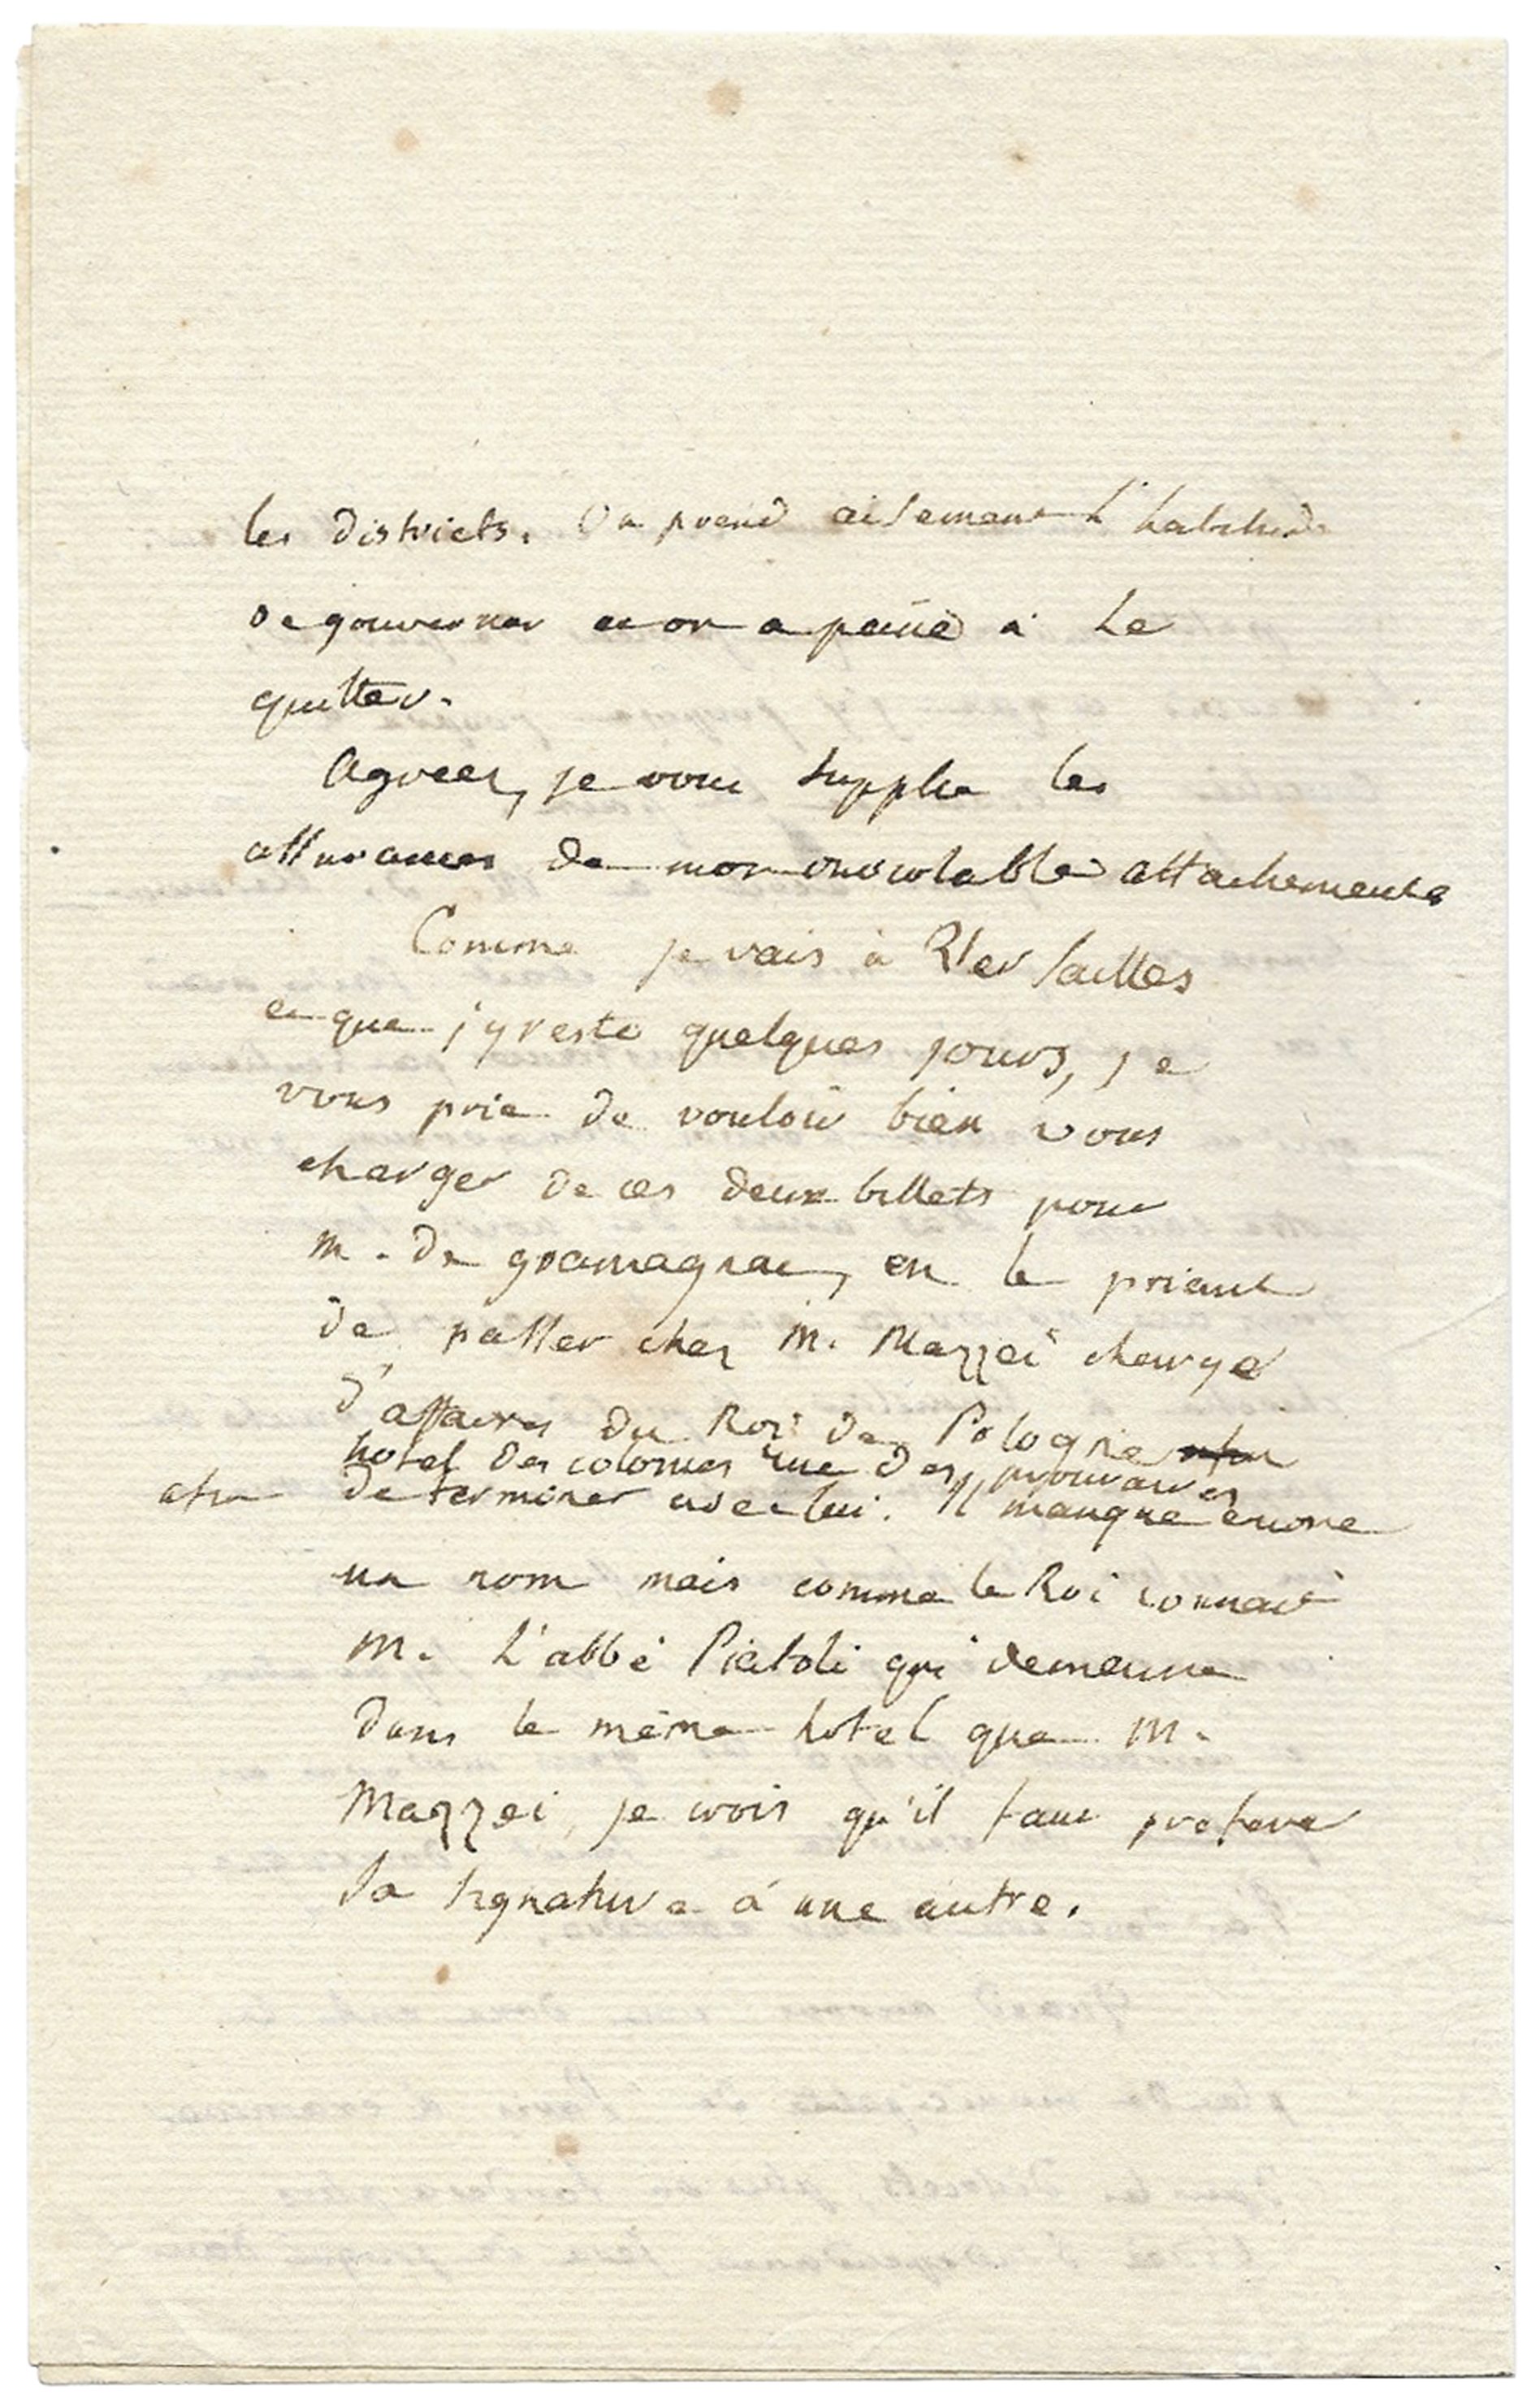 les districts. On prend aisement l'habitude
de gouverner et on a peine à le
quitter.
Agreez, je vous supplie les
assurances de mon inviolable attachement
Comme je vais à Versailles
et que j'y reste quelques jours, je
vous prie de vouloir bien vous
charger de ces deux billets pour
m. de gramagnac, en le priant
de passer chez M. Mazzei chargé
d'affaires du Roi de Pologne afin
hotel des colonies rue des prouvaires
afin determiner avec lui. Il manque encore
un nom mais comme le Roi connait
M. L'abbé Piatoli qui demeure
dans le même hotel que M.
Mazzei, je crois qu'il faut preferer
sa signature à une autre.